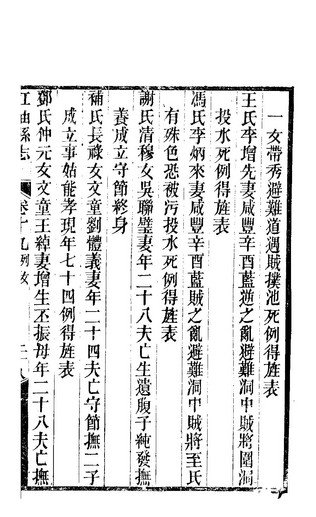 一女帶秀避難道遇賊撲池死例得旌表
王氏李增先妻咸豐辛酉藍逆之亂避難洞中賊將圍洞
投水死例得旌表
馮氏李炳來妻咸豐辛酉藍賊之亂避難洞中賊將至氏
有殊色恐被污投水死例得旌表
謝氏清穆女吳聯璧妻年二十八夫亡生遺腹子純發撫
養成立守節終身
補氏長祿女文童劉體義妻年二十四夫亡守節撫二子
成立事姑能孝現年七十四例得旌表
鄧氏仲元女文童王綽妻增生丕振母年二十八夫亡撫
江油縣志
卷十九列女